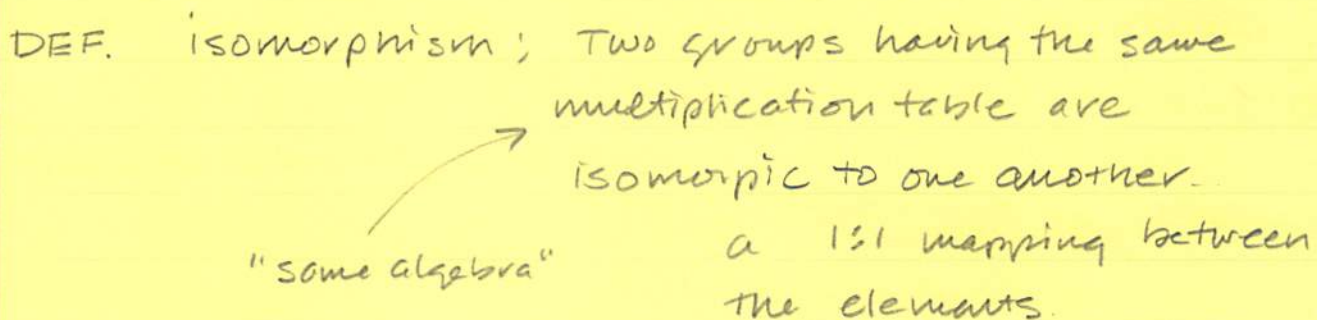 DEF. isomorphism; Two groups having the same
multiplication table are
isomorpic to one another.
"same algebra"
a 1:1 mapping between
the elements.